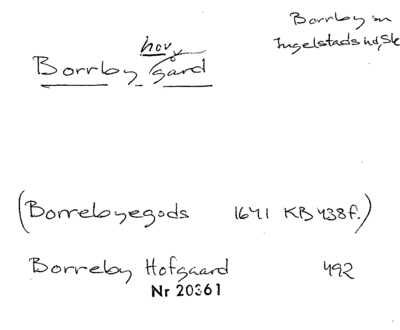 Borrby sn
Ingelstads hd, Sk
hov
Borrby gård
(Borrebyegods 1671 KB 438f.)
Borreby Hofgaard 492
Nr 20361